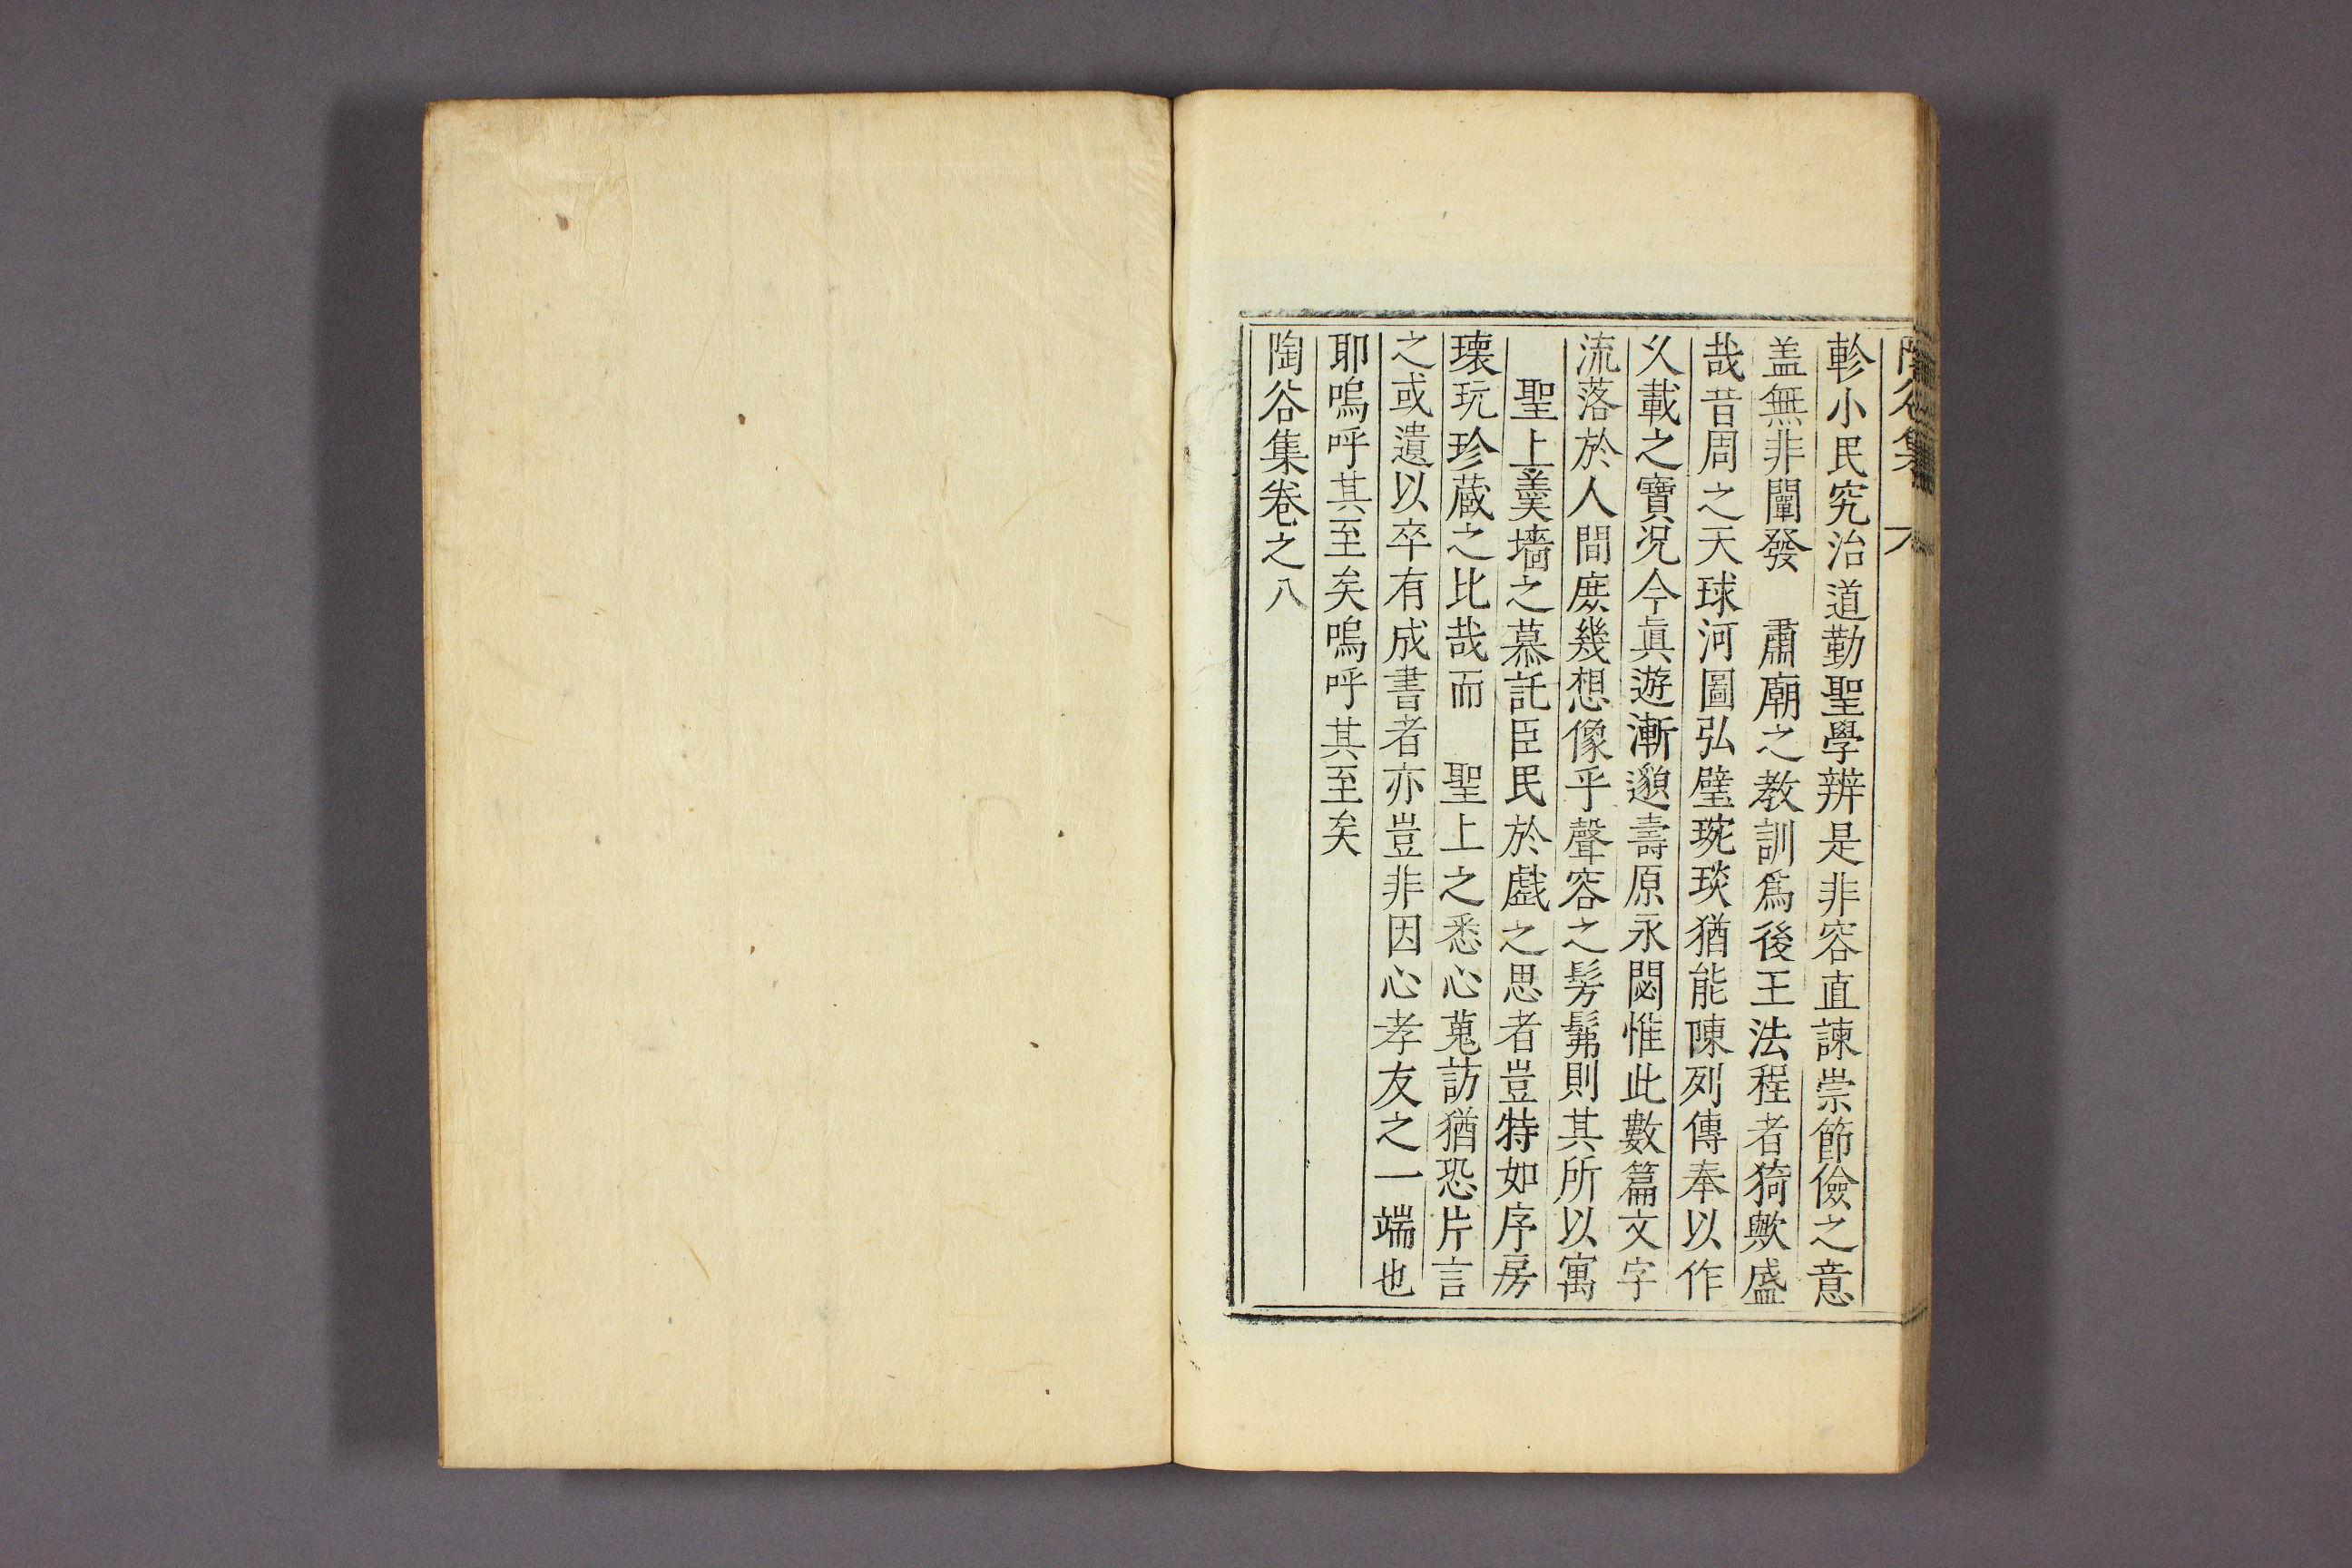 陶谷集　八
軫小民究治道勤聖學辨是非容直諫崇節儉之意
盖無非闡發　肅廟之教訓爲後王法程者猗歟盛
哉昔周之天球河圖弘璧琬琰猶能陳列傳奉以作
乆載之寶况今眞遊漸邈壽原永閟惟此數篇文字
流落於人間庶幾想像乎聲容之髣髴則其所以寓
聖上羹墻之慕託臣民於戲之思者豈特如序房
瓌玩珍蔵之比哉而　聖上之悉心蒐訪猶恐片言
之或遺以卒有成書者亦豈非因心孝友之一端也
耶嗚呼其至矣嗚呼其至矣
陶谷集卷之八